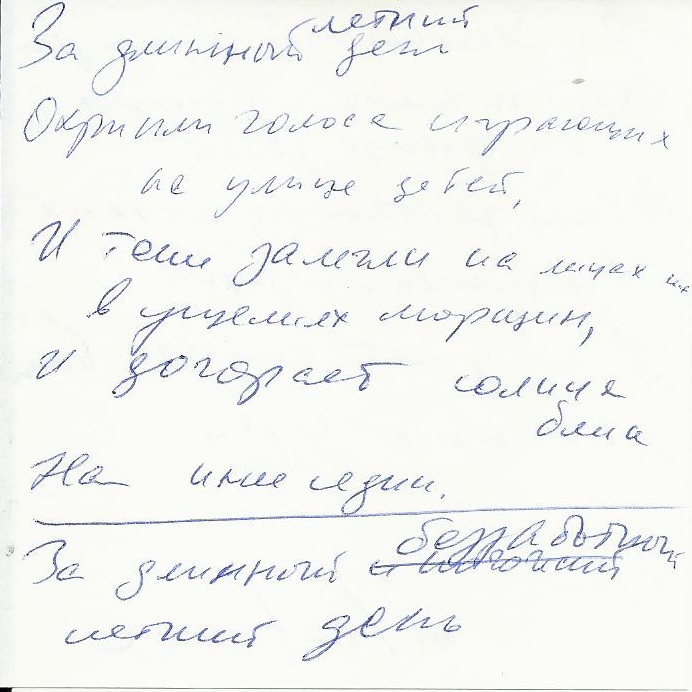 За длинный летний день
Охрипли голоса играющих
на улице детей,
И тени залегли на лицах их
в ущельях морщин,
И догорает солнца
На инее седин.
За длинный безработный
летний день